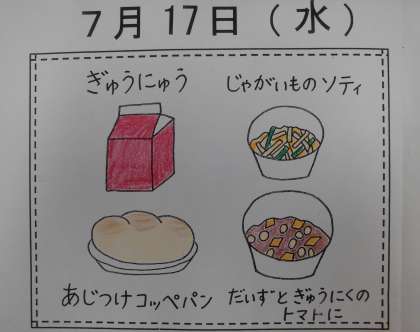 7月17日(水)
ぎゅうにゅう
じゃがいものソティ
あじつけコッペパン
だいずとぎゅうにくの
トマトに